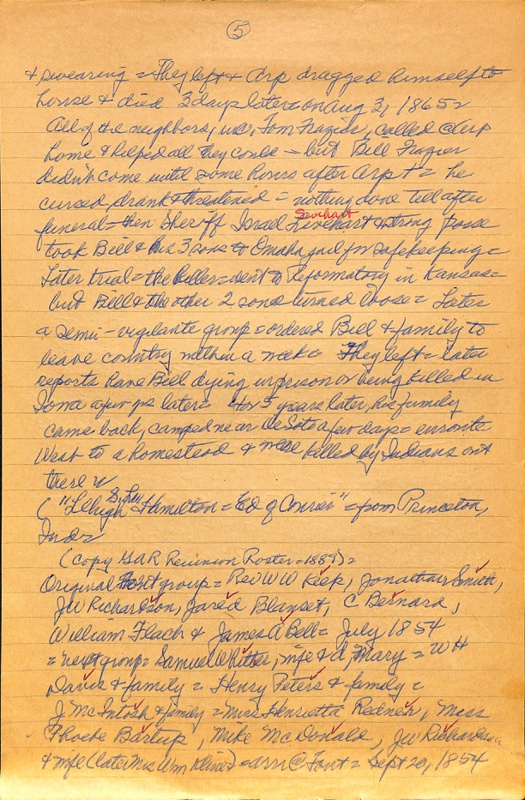 5
& swearing = They left & Arp dragged himself to
house & died 3 days later = on Aug 3, 1865 =
All of the neighbors, inc, Tom Frazier, called @ Arp
home & helped all they could – but Bill Frazier
didn't come until some hours after Arp † = he
cursed, drank & threatened = nothing done till after
Swihart
funeral = then Sheriff Israel & strong posse
took Bill & his 3 sons to Omaha jail for safekeeping =
Later trial = the killer = went to Reformatory in Kansas =
but Bill & the other 2 sons turned loose = Later
a semi-vigilante group = ordered Bill & family to
leave country within a week = They left = later
reports have Bell dying in prison or being killed in
Iowa a few yrs later = 4 or 5 years later, his family
came back, camped near DeSoto a few days = enroute
West to a homestead & were killed by Indians out
there
("Lehigh" Hamilton = Ed of Courier" = from Princeton,
Ind =
(Copy GAR Reunion Roster = 1889) =
Original Font group = Rev W W Keep, Jonathan Smith,
JW Richardson, Jared Blanset, C Bernard,
William Flack & James A Bell = July 1854
= next group = Samuel Whittier, wife & d, Mary = W H
Davis & family = Henry Peters & family =
J McIntosh & family = Miss Henrietta Redner, Miss
Phoebe Bartup, Mike McDonald, JW Richardson
& wife (later Mrs Wm Kline) = arr @ Font = Sept 20, 1854